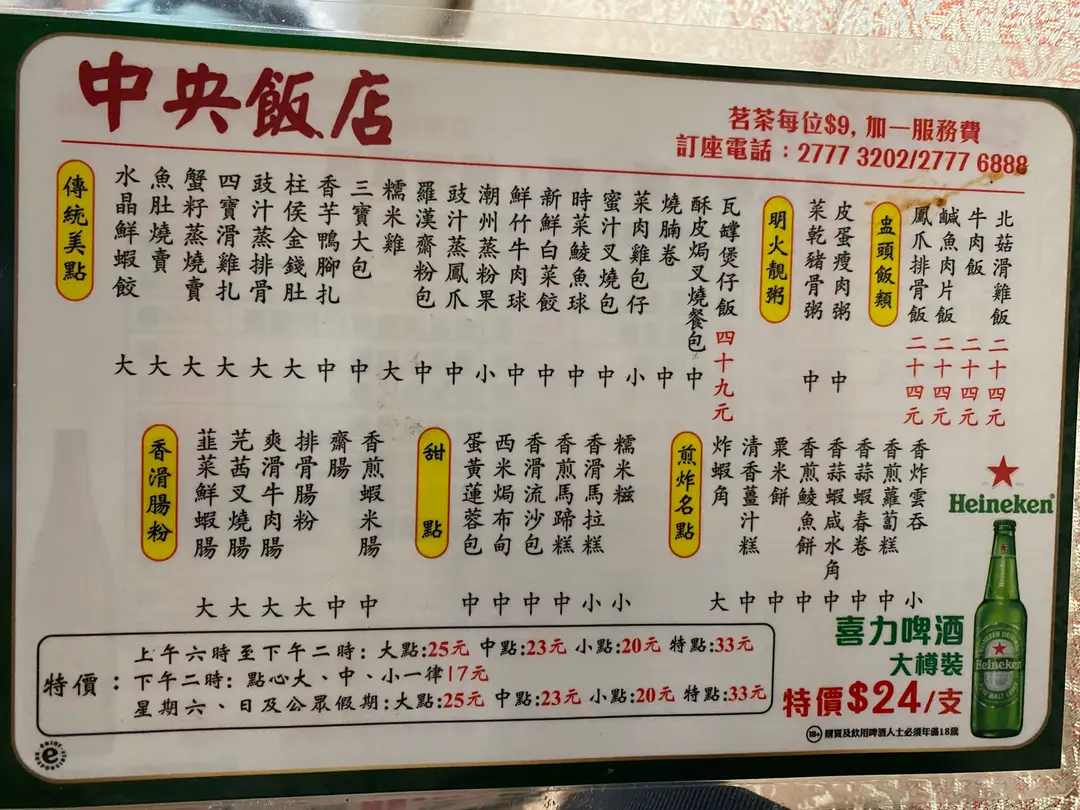 中央飯店
茗茶每位$9, 加一服務費
訂座電話：2777 3202/2777 6888
傳統美點
水晶鮮蝦餃 大
魚肚燒賣 大
蟹籽蒸燒賣 大
四寶滑雞扎 大
豉汁蒸排骨 大
柱侯金錢肚 大
香芋鴨腳扎 中
三寶大包 中
糯米雞 大
羅漢齋粉包 中
豉汁蒸鳳爪 中
潮州蒸粉果 小
鮮竹牛肉球 中
新鮮白菜餃 中
時菜鯪魚球 中
蜜汁叉燒包 中
菜肉雞包仔 小
燒腩卷 中
酥皮焗叉燒餐包 中
瓦罉煲仔飯 四十九元
明火靚粥
菜乾豬骨粥 中
皮蛋瘦肉粥 中
盅頭飯類
鳳爪排骨飯 二十四元
鹹魚肉片飯 二十四元
牛肉飯 二十四元
北菇滑雞飯 二十四元
香滑腸粉
韮菜鮮蝦腸 大
芫茜叉燒腸 大
爽滑牛肉腸 大
排骨腸粉 大
齋腸 中
香煎蝦米腸 中
甜點
蛋黃蓮蓉包 中
西米焗布甸 中
香滑流沙包 中
香煎馬蹄糕 中
香滑馬拉糕 小
糯米糍 小
煎炸名點
炸蝦角 大
清香薑汁糕 中
粟米餅 中
香煎鯪魚餅 中
香蒜蝦咸水角 中
香蒜蝦春卷 中
香煎蘿蔔糕 中
香炸雲吞 小
Heineken
Heineken
喜力啤酒
大樽裝
特價$24/支
18+ 購買及飲用啤酒人士必須年滿18歲
特價：
上午六時至下午二時：大點:25元 中點:23元 小點:20元 特點:33元
下午二時：點心大、中、小一律17元
星期六、日及公眾假期:大點:25元 中點:23元 小點:20元 特點:33元